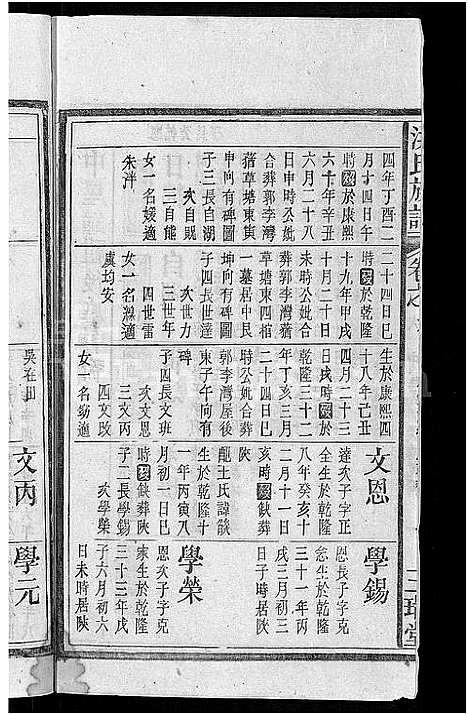 四年丁酉二
月十四日午
時歿於康熙
六十年辛丑
六月二十八
日申時公妣
合葬郭李灣
蕕草塘東寅
申向有碑圖
子三長自湖
次自貺
三自能
女一名嫒適
朱泮
二十四日巳
時歿於乾隆
十九年甲戌
十月二十日
未時公妣合
葬郭李灣蕕
草塘東四棺
一墓居中艮
坤向有碑圖
子四長世運
次世力
三世年
四世雷
女一名㵑適
虞均安
生於康熙四
十八年己丑
四月二十三
日戌時歿於
乾隆三十二
年丁亥三月
二十四日巳
時公妣合葬
郭李灣屋後
東子午向有
碑
子四長文班
次文恩
三文丙
四文玫
女一名㛃適
吳在田
文恩
達次子字正
全生於乾隆
八年癸亥十
二月十一日
亥時歿缺葬
陝
龍王氏諱談
生於乾隆十
一年丙寅八
月初一日巳
時歿缺葬陝
子二長學錫
次學榮
文丙
學錫
恩長子字克
忿生於乾隆
三十一年丙
戌三月初三
日子時居陝
學榮
恩次子字克
家生於乾隆
三十三年戊
子六月初六
日未時居陝
學元
氏族譜
卷之